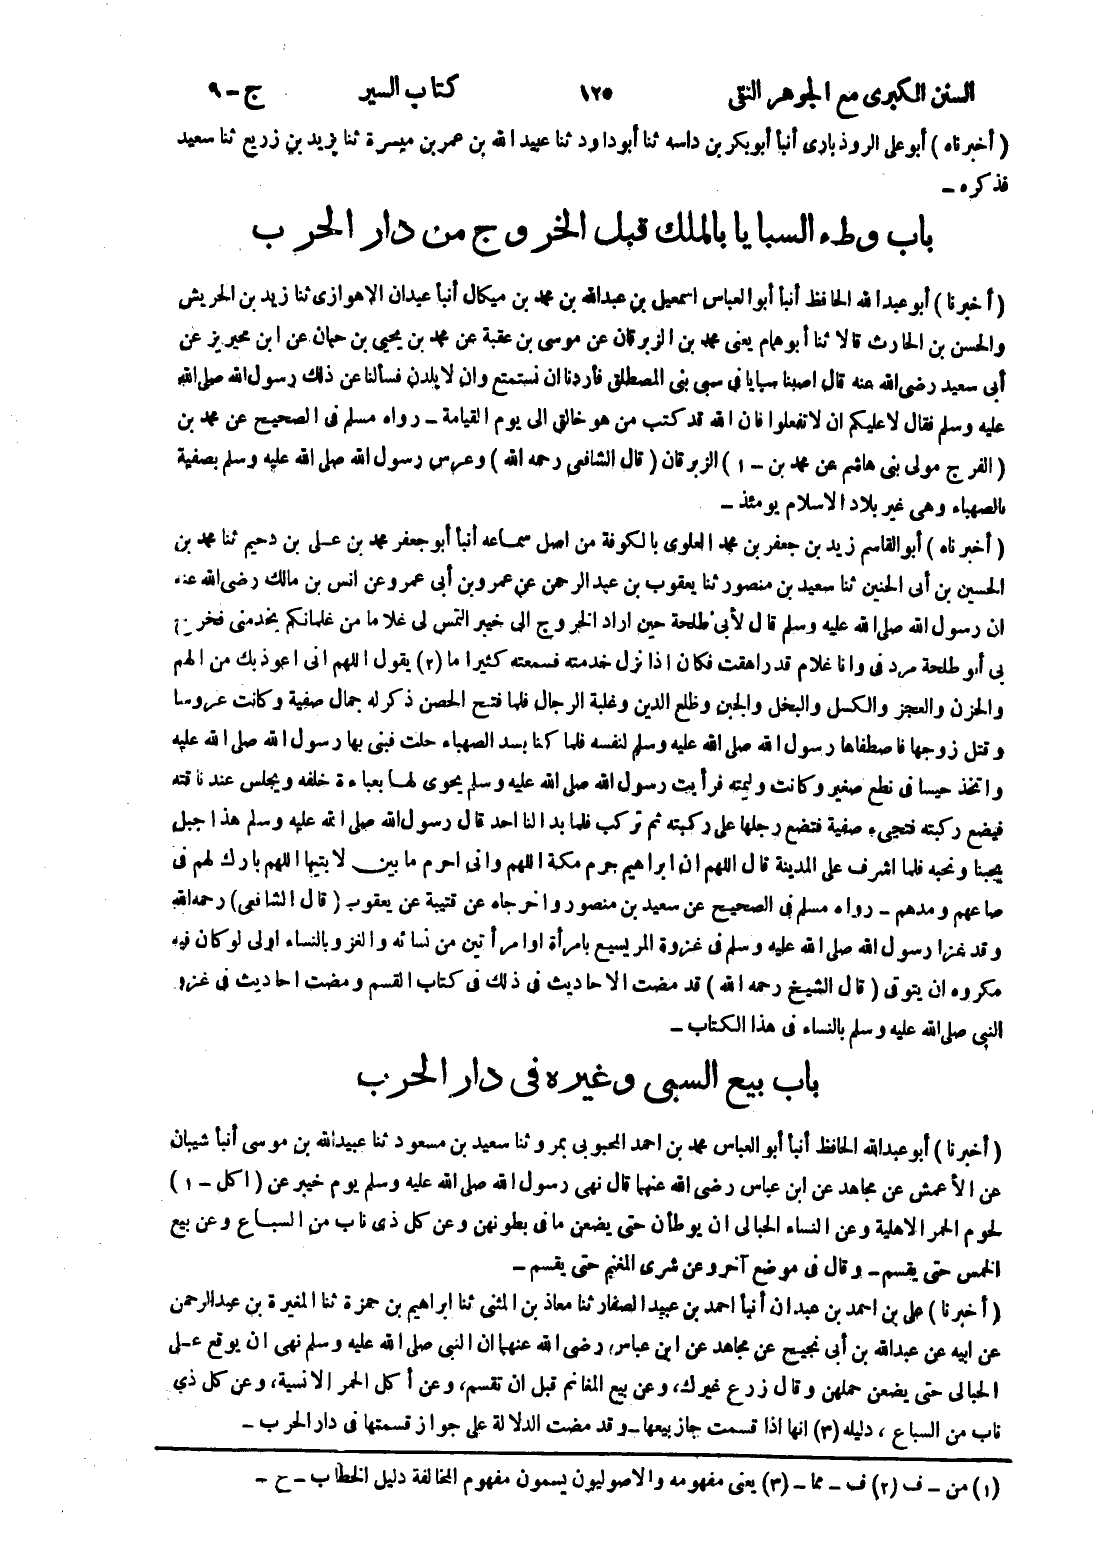 السنن الكبرى مع الجوهر النقى ١٢٥ كتاب السير ج - ٩
( أخبرناه ) أبو على الروذبارى أنبأ أبوبكر بن داسه ثنا أبوداود ثنا عبيد الله بن عمر بن ميسرة ثنا يزيد بن زريع ثنا سعيد
فذكره -
باب وطء السبايا بالملك قبل الخروج من دار الحرب
( أخبرنا ) أبو عبد الله الحافظ أنبأ أبو العباس اسمعيل بن عبدالله بن محمد بن ميكال أنبأ عبدان الاهوازى ثنا زيد بن الحريش
والحسن بن الحارث قالا ثنا أبو همام يعنى محمد بن الزبرقان عن موسى بن عقبة عن محمد بن يحيى بن حبان عن ابن محيريز عن
أبى سعيد رضى الله عنه قال اصبنا سبايا فى سبى بنى المصطلق فأردنا ان نستمتع وان لا يلدن فسألنا عن ذلك رسول الله صلى الله
عليه وسلم فقال لا عليكم ان لا تفعلوا فان الله قد كتب من هو خالق الى يوم القيامة - رواه مسلم فى الصحيح عن محمد بن
( الفرج مولى بنى هاشم عن محمد بن - ١ ) الزبرقان ( قال الشافعى رحمه الله ) وعرس رسول الله صلى الله عليه وسلم بصفية
بالصهباء وهى غير بلاد الاسلام يومئذ -
( أخبرناه ) أبو القاسم زيد بن جعفر بن محمد العلوى بالكوفة من اصل سماعه أنبأ أبو جعفر محمد بن على بن دحيم ثنا محمد بن
الحسين بن أبى الحنين ثنا سعيد بن منصور ثنا يعقوب بن عبد الرحمن عن عمرو بن أبى عمرو عن انس بن مالك رضى الله عنه
ان رسول الله صلى الله عليه وسلم قال لأبى طلحة حين اراد الخروج الى خيبر التمس لى غلاما من غلمانكم يخدمنى فخرج
بى أبو طلحة مردفى وانا غلام قد راهقت فكان اذا نزل خدمته فسمعته كثيرا ما (٢) يقول اللهم انى اعوذ بك من الهم
والحزن والعجز والكسل والبخل والجبن وظلع الدين وغلبة الرجال فلما فتح الحصن ذكر له جمال صفية وكانت عروسا
وقتل زوجها فاصطفاها رسول الله صلى الله عليه وسلم لنفسه فلما كنا بسد الصهباء حلت فبنى بها رسول الله صلى الله عليه
واتخذ حيسا فى نطع صغير وكانت وليمته فرأيت رسول الله صلى الله عليه وسلم يحوى لها بعباءة خلفه ويجلس عند ناقته
فيضع ركبته فتجىء صفية فتضع رجلها على ركبته ثم تركب فلما بدا لنا احد قال رسول الله صلى الله عليه وسلم هذا جبل
يحبنا ونحبه فلما اشرف على المدينة قال اللهم ان ابراهيم حرم مكة اللهم وانى احرم ما بين لابتيها اللهم بارك لهم فى
صاعهم ومدهم - رواه مسلم فى الصحيح عن سعيد بن منصور واخرجاه عن قتيبة عن يعقوب ( قال الشافعى ) رحمه الله
وقد غزا رسول الله صلى الله عليه وسلم فى غزوة المريسيع بامرأة او امرأتين من نسائه والغزو بالنساء اولى لو كان فيه
مكروه ان يتوقى ( قال الشيخ رحمه الله ) قد مضت الاحاديث فى ذلك فى كتاب القسم ومضت احاديث فى غزو
النبى صلى الله عليه وسلم بالنساء فى هذا الكتاب -
باب بيع السبى وغيره فى دار الحرب
( أخبرنا ) أبو عبدالله الحافظ أنبأ أبو العباس محمد بن احمد المحبوبى بمرو ثنا سعيد بن مسعود ثنا عبيدالله بن موسى أنبأ شيبان
عن الأعمش عن مجاهد عن ابن عباس رضى الله عنهما قال نهى رسول الله صلى الله عليه وسلم يوم خيبر عن ( اكل - ١ )
لحوم الحمر الاهلية وعن النساء الحبالى ان يوطأن حتى يضعن ما فى بطونهن وعن كل ذى ناب من السباع وعن بيع
الخمس حتى يقسم - وقال فى موضع آخر وعن شرى المغنم حتى يقسم -
( أخبرنا ) على بن احمد بن عبدان أنبأ احمد بن عبيد الصفار ثنا معاذ بن المثنى ثنا ابراهيم بن حمزة ثنا المغيرة بن عبدالرحمن
عن ابيه عن عبدالله بن أبى نجيح عن مجاهد عن ابن عباس رضى الله عنهما ان النبى صلى الله عليه وسلم نهى ان يوقع على
الحبالى حتى يضعن حملهن وقال زرع غيرك، وعن بيع المغانم قبل ان تقسم، وعن أكل الحمر الانسية، وعن كل ذي
ناب من السباع ، دليله (٣) انها اذا قسمت جاز بيعها - وقد مضت الدلالة على جواز قسمتها فى دار الحرب -
(١) من - ف (٢) ف - مما - (٣) يعنى مفهومه والاصوليون يسمون مفهوم المخالفة دليل الخطاب - ح -